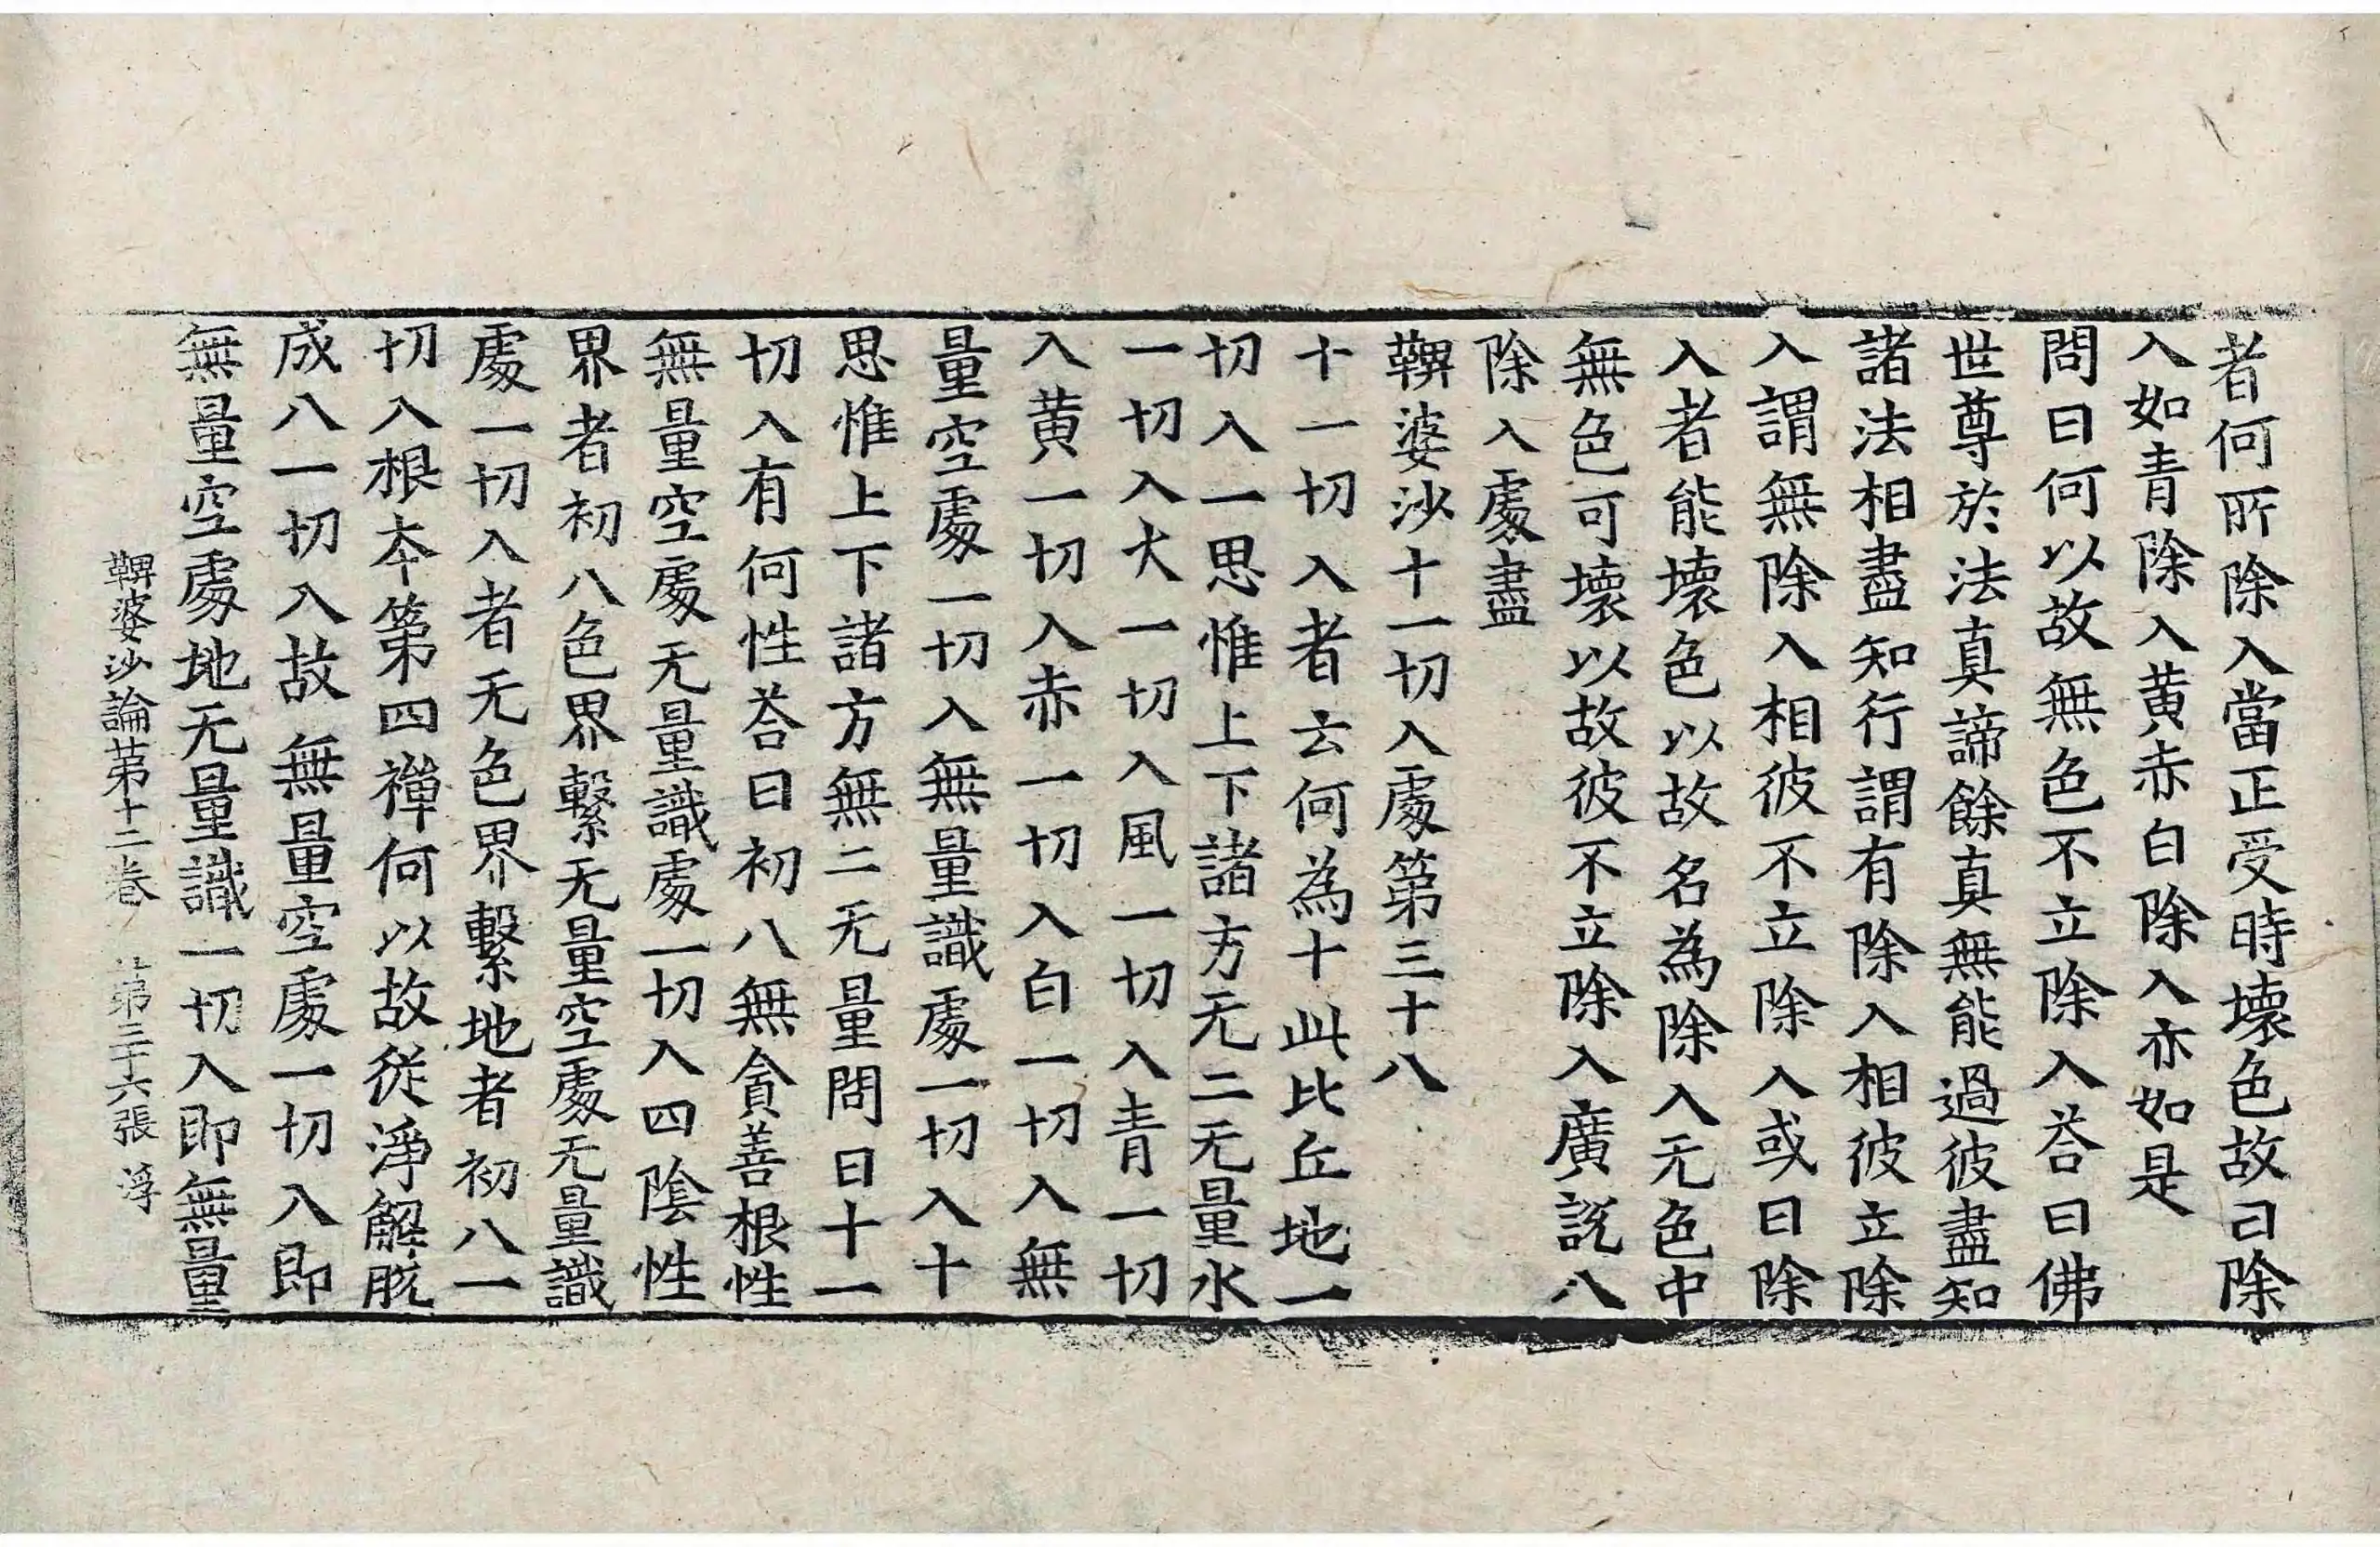 者何所除入當正受時壞色故曰除
入如青除入黄赤白除入亦如是
問曰何以故無色不立除入荅曰佛
世尊於法真諦餘真無能過彼盡知
諸法相盡知行謂有除入相彼立除
入謂無除入相彼不立除入或曰除
入者能壞色以故名為除入无色中
無色可壞以故彼不立除入廣說八
除入處盡
鞞婆沙十一切入處第三十八
十一切入者云何為十此比丘地一
切入一思惟上下諸方无二无量水
一切入火一切入風一切入青一切
入黄一切入赤一切入白一切入無
量空處一切入無量識處一切入十
思惟上下諸方無二无量問曰十一
切入有何性荅曰初八無貪善根性
無量空處无量識處一切入四陰性
界者初八色界繫无量空處无量識
處一切入者无色界繫地者初八一
切入根本第四禪何以故從淨解脫
成八一切入故無量空處一切入即
無量空處地无量識一切入即無量
鞞婆沙論第十二卷 第三十六張 浮